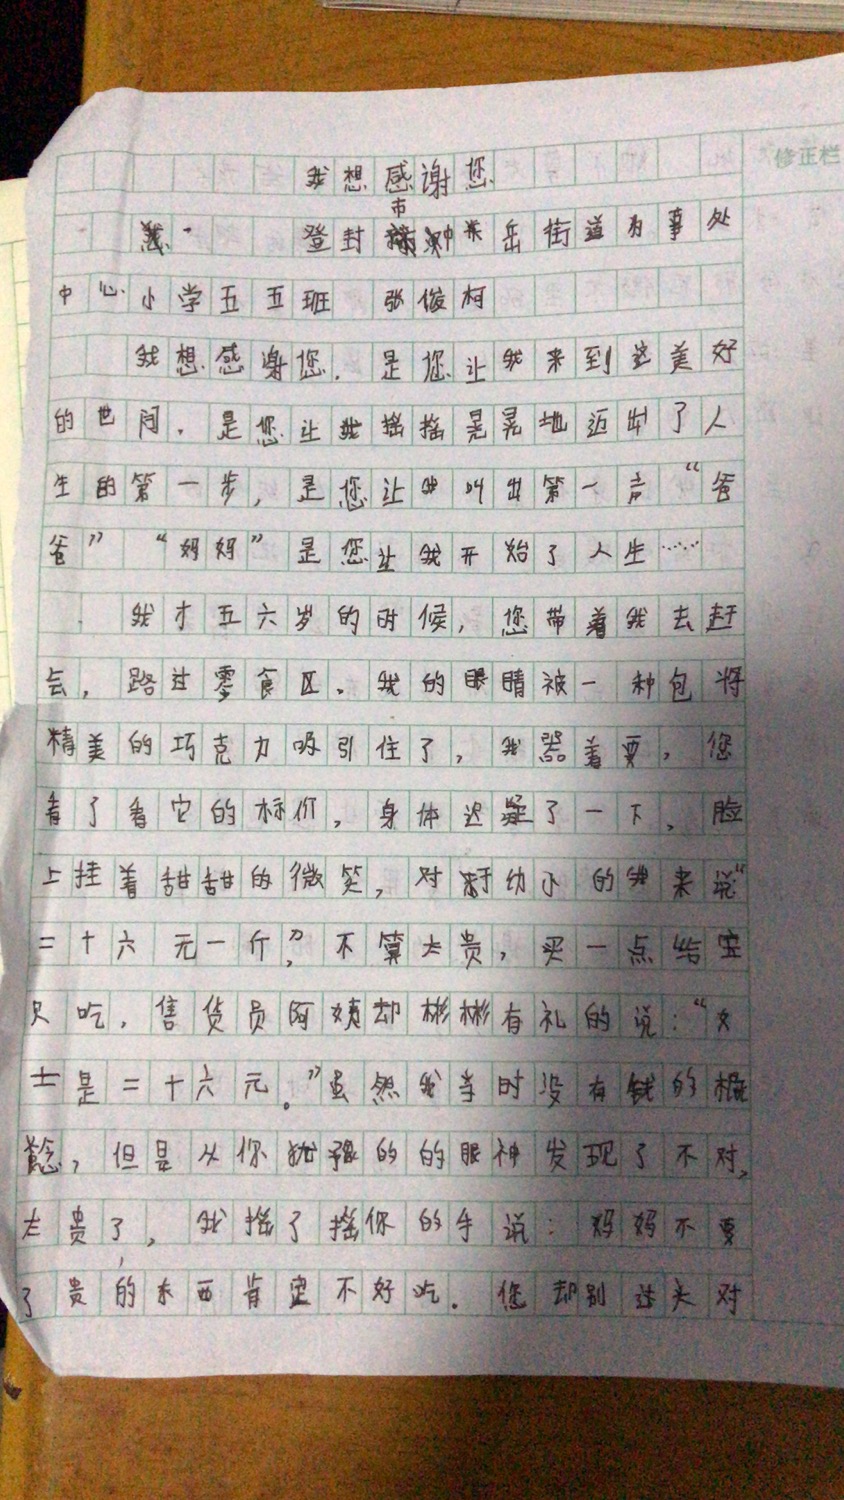 修正栏
我想感谢您
市
登封 岳街道办事处
中心小学五五班 张俊柯
我想感谢您，是您让我来到这美好
的世间，是您让我摇摇晃晃地迈出了人
生的第一步，是您让我叫出第一声“爸
爸”“妈妈”是您让我开始了人生……
我才五六岁的时候，您带着我去赶
会，路过零食区。我的眼睛被一种包将
精美的巧克力吸引住了，我嚣着要，您
看了看它的标价，身体迟疑了一下，脸
上挂着甜甜的微笑，对 幼小的我来说“
二十六元一斤”，不算太贵，买一点给宝
贝吃，售货员阿姨却彬彬有礼的说：“女
士是二十六元。”虽然我当时没有钱的概
念，但是从你犹豫的的眼神发现了不对，
太贵了，我摇了摇你的手说：妈妈不要
了，贵的东西肯定不好吃。您却别过头对